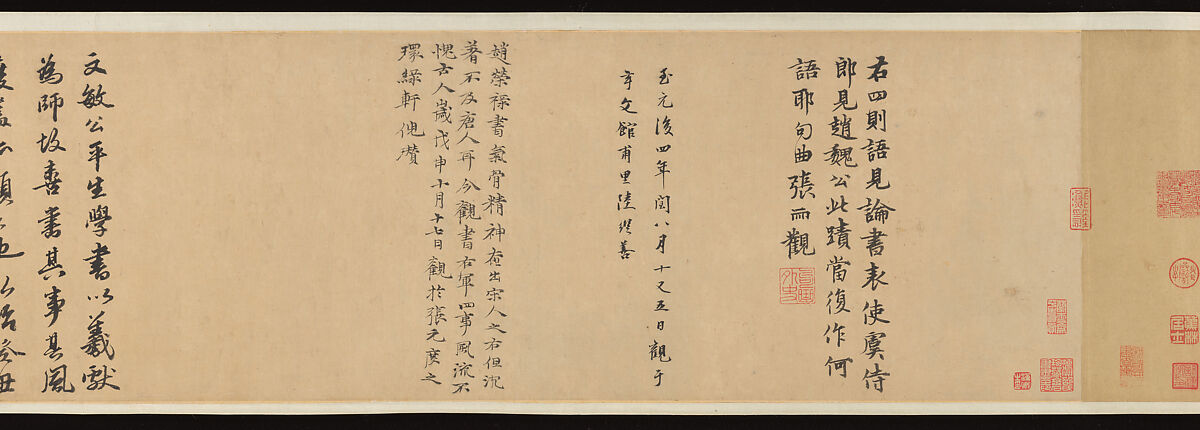 右四則語見論書表使虞侍
郎見趙魏公此蹟當復作何
語耶句曲張雨觀
至元後四年閏八月十又五日觀于
文館甫里陸繼善
趙榮祿書氣骨精神在出宋人之右但沉
著不及唐人耳今觀書右軍四事風流不
愧古人歲戊申十月十七日觀於張元度之
環綠軒倪瓚
文敏公平生學書以羲獻
為師故喜書其事其風